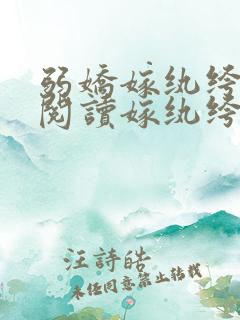 弱嬌嫁纨绔
閱讀嫁纨绔
汪詩皓
未經同意禁止轉載